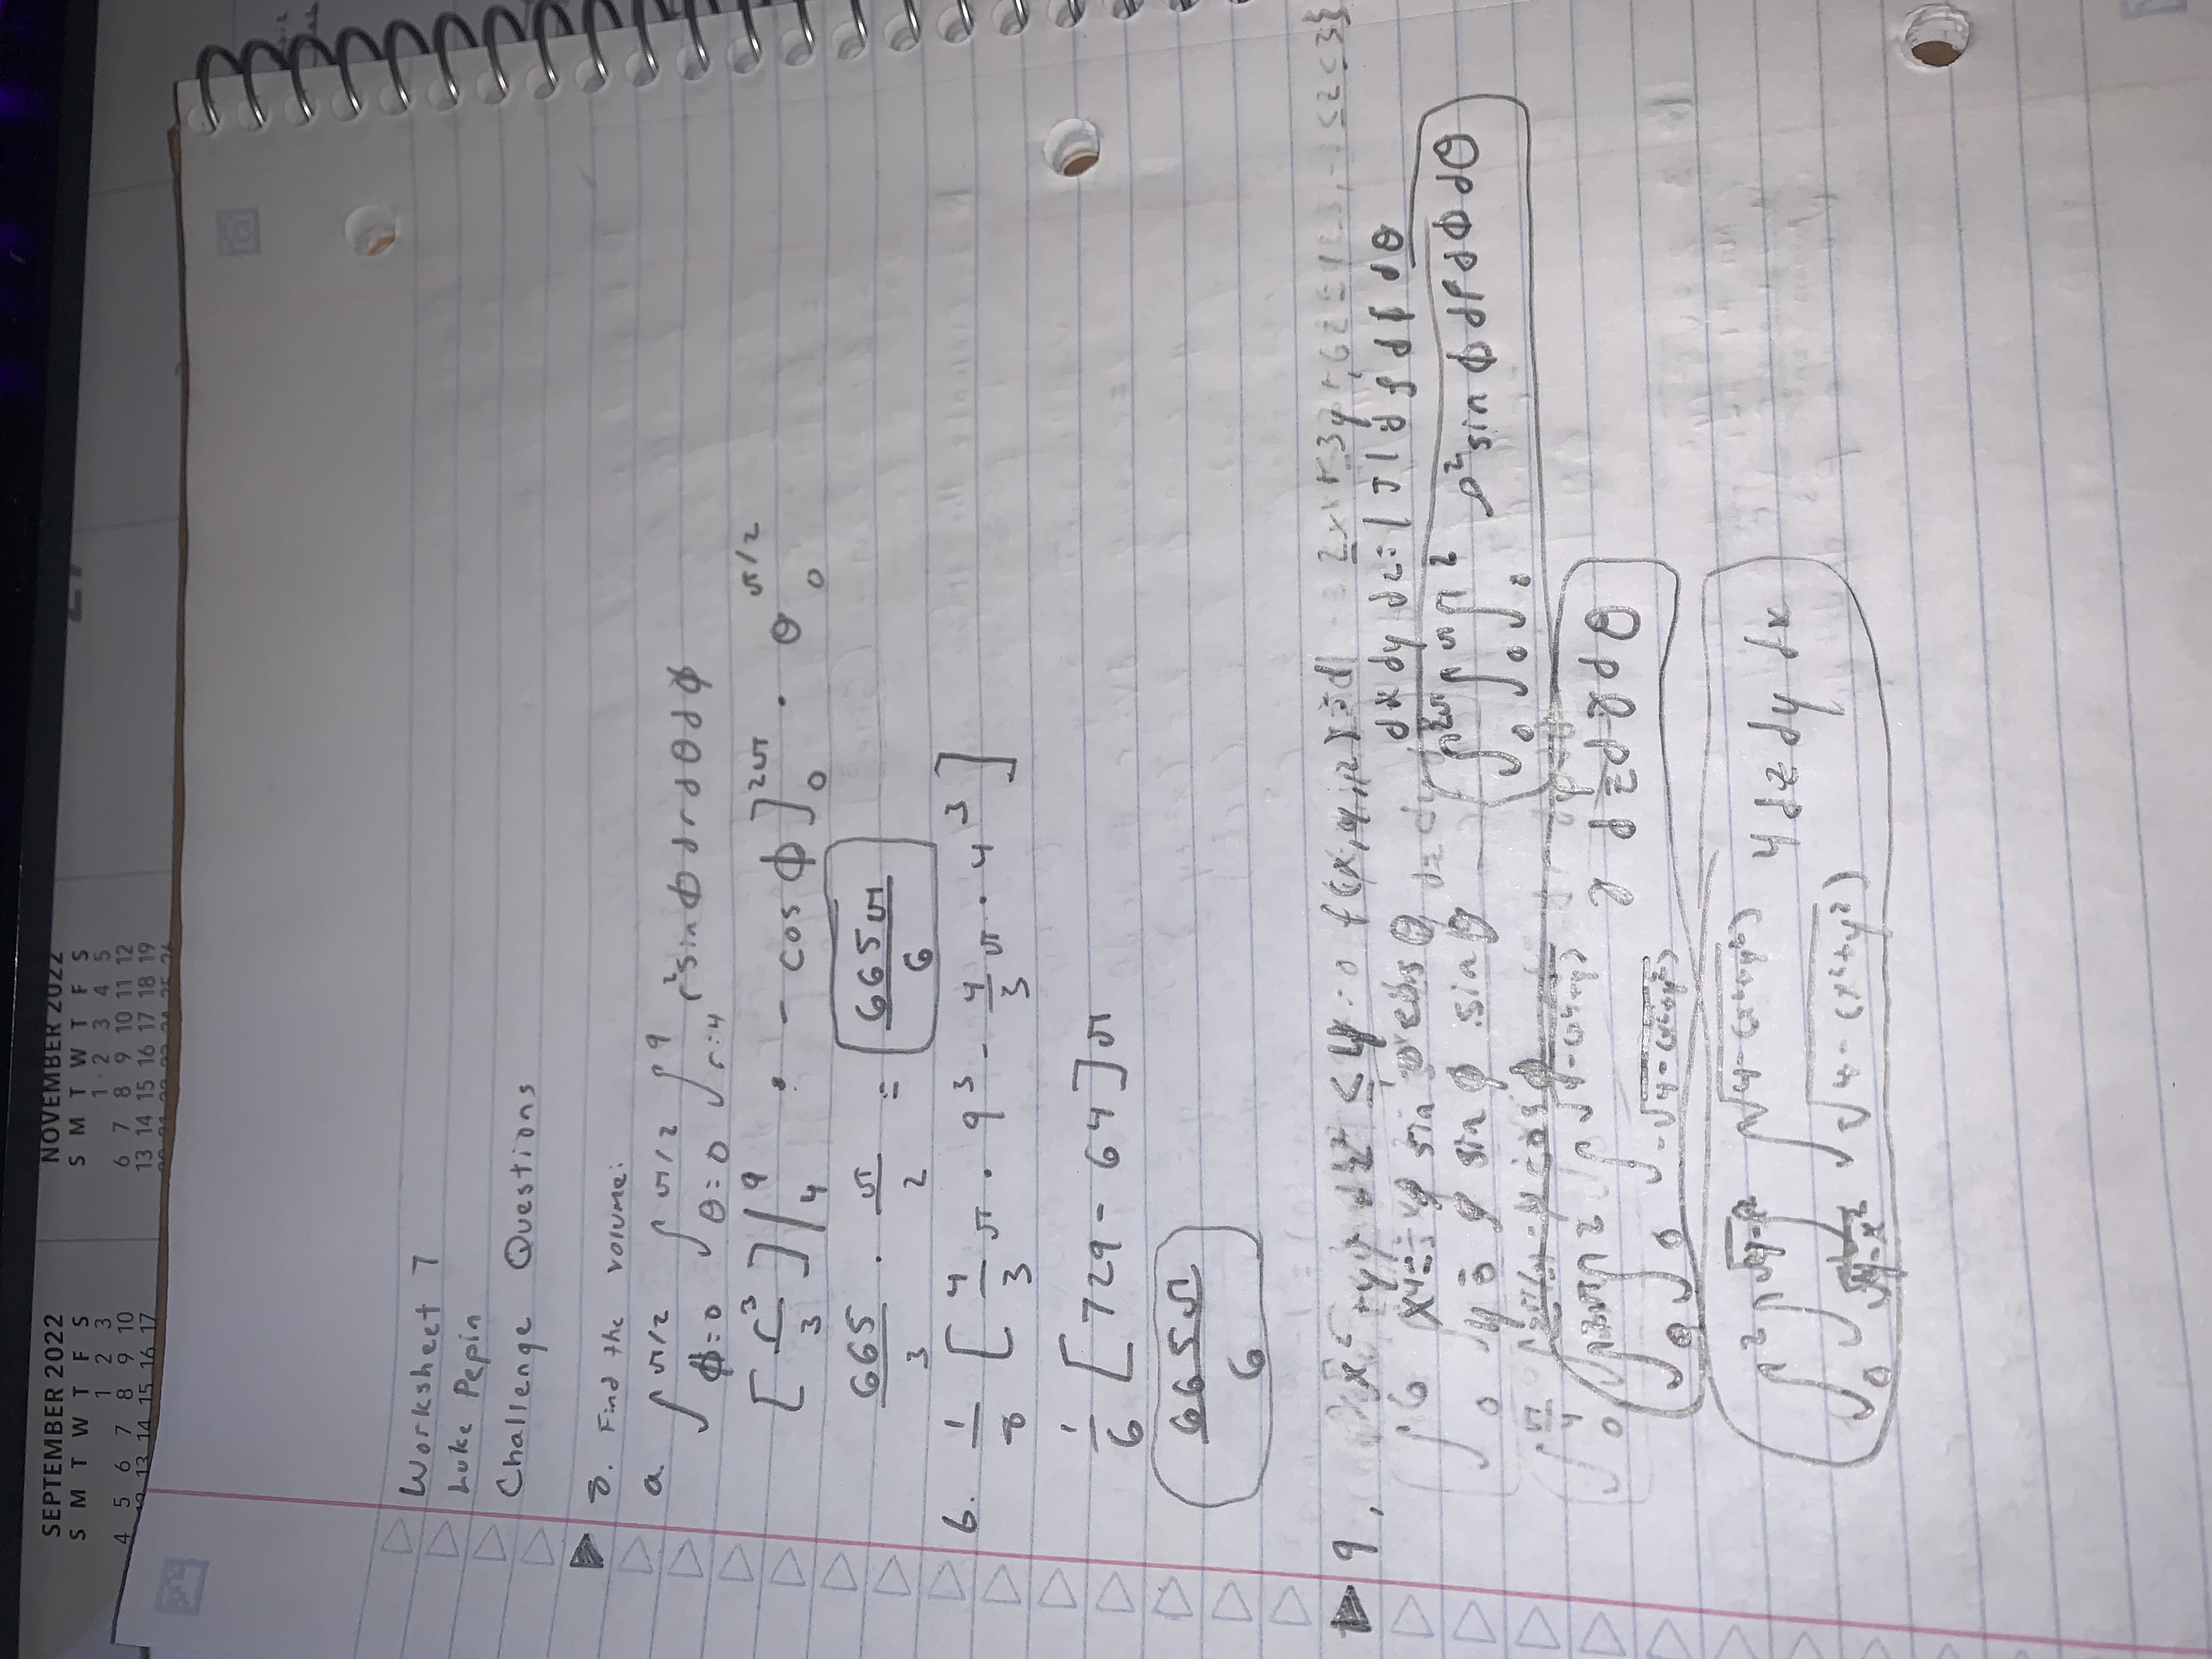 SEPTEMBER 2022
S M T W T F S
1 2 3
4 5 6 7 8 9 10
13 14 15 16 17
NOVEMBER 2022
S M T W T F S
1 2 3 4 5
6 7 8 9 10 11 12
13 14 15 16 17 18 19
Worksheet 7
Luke Pepin
Challenge Questions
8. Find the volume:
a. ∫_{ϕ=0}^{π/2} ∫_{θ=0}^{π/2} ∫_{r=4}^{9} r² sin ϕ dr dθ dϕ
[r³/3]|_4^9 · -cos ϕ]_0^{2π} · θ_0^{π/2}
665/3 · π/2 = 665π/6
6. 1/8 [4/3 π · 9³ - 4/3 π · 4³]
1/6 [729 - 64] π
665π/6
9. ≤ 4
dx dy dz = |J| dρ dϕ dθ
y = ρ sin ϕ sin θ
∫_0^{2π} ∫_0^π ∫_0^2 ρ² sin ϕ dρ dϕ dθ
∫_0^{2π} ∫_0^2 ∫_{-√(4-(x²+y²))} r dz dr dθ
∫_0^2 ∫_{√(4-x²)} ∫_{√(4-(x²+y²))}^{√(4-(x²+y²))} 4 dz dy dx